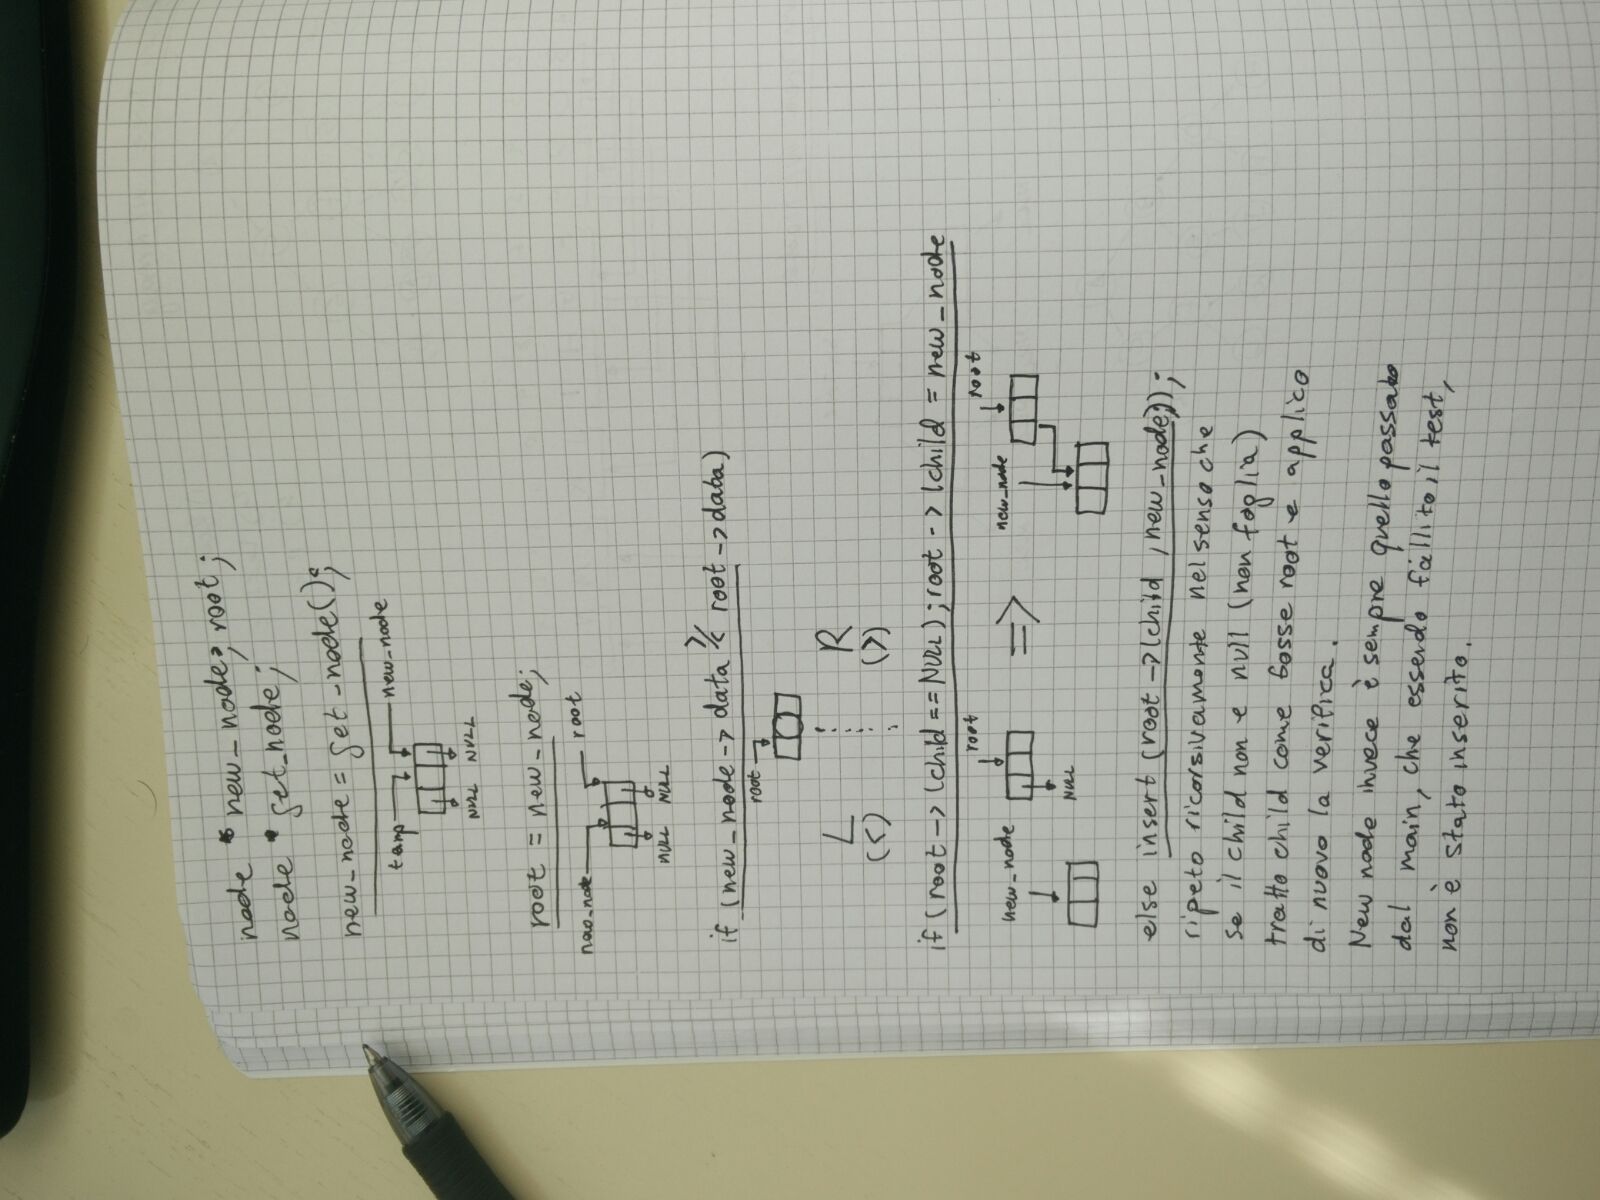 node * new_node, root;
node * get_node;
new_node = get_node();
temp new_node
NULL NULL
root = new_node;
new_node root
NULL NULL
if (new_node -> data ≷ root -> data)
root
L R
(<) (>)
if (root -> (child == NULL); root -> (child = new_node
new_node root new_node root
=>
NULL
else insert (root -> (child, new_node));
ripeto ricorsivamente nel senso che
se il child non e null (non foglia)
tratto child come fosse root e applico
di nuovo la verifica.
New node invece è sempre quello passato
dal main, che essendo fallito, il test,
non è stato inserito.